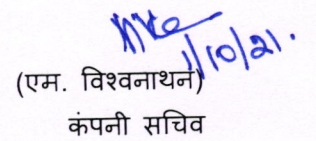 1/10/21.
(एम. विश्वनाथन)
कंपनी सचिव